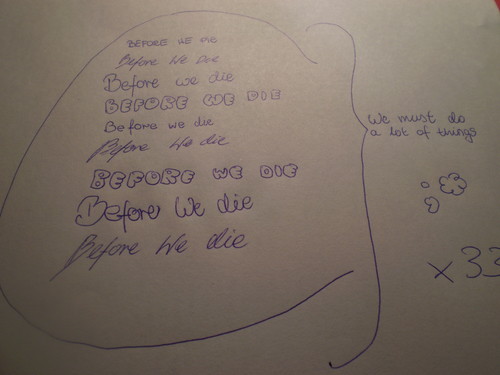 BEFORE WE DIE
Before We Die
Before we die
BEFORE WE DIE
Before we die
Before We die
BEFORE WE DIE
Before We die
Before We die
We must do
a lot of things
x 33